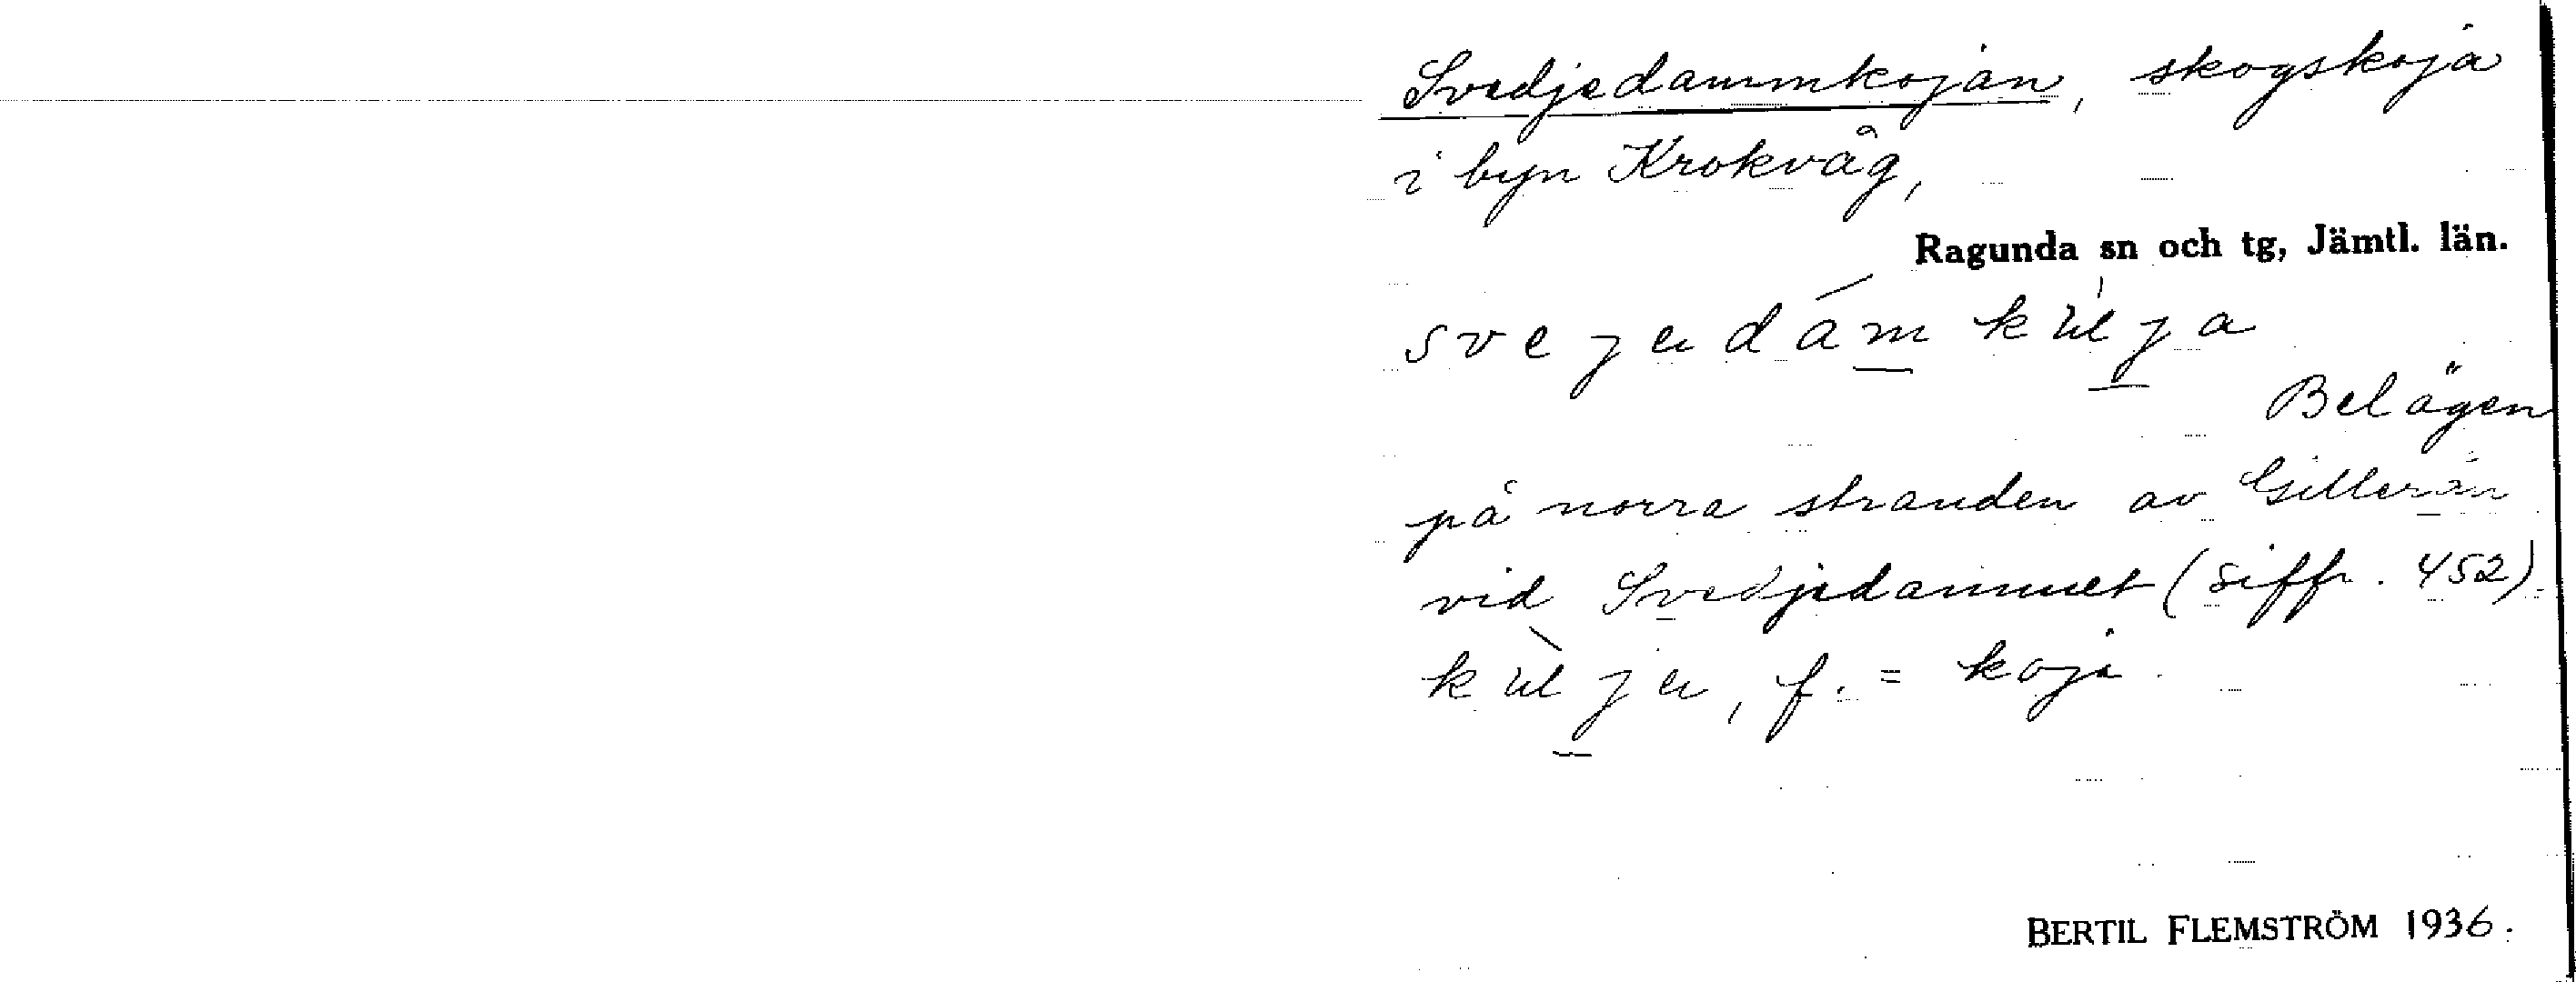 Svedjedammkojan, skogskoja
i byn Krokvåg,
Ragunda sn och tg, Jämtl. län.
Belägen
på norra stranden av Gillerån
vid Svedjedammet (siffr. 452).
f. = koja.
BERTIL FLEMSTRÖM 1936.